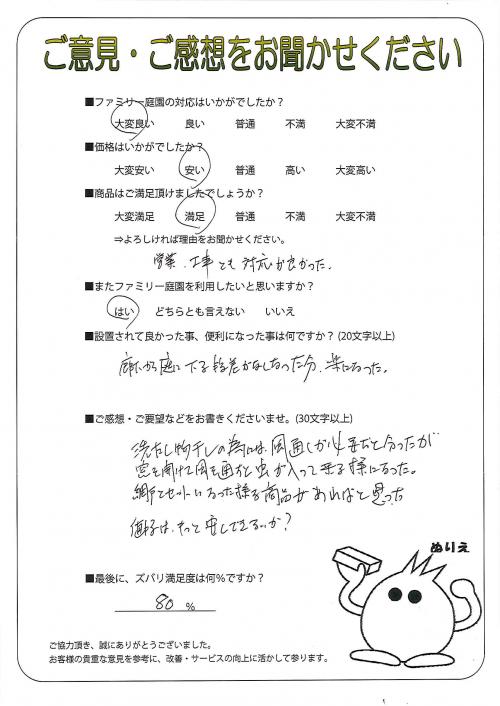 ご意見・ご感想をお聞かせください
■ファミリー庭園の対応はいかがでしたか？
大変良い 良い 普通 不満 大変不満
■価格はいかがでしたか？
大変安い 安い 普通 高い 大変高い
■商品はご満足頂けましたでしょうか？
大変満足 満足 普通 不満 大変不満
⇒よろしければ理由をお聞かせください。
営業、工事とも対応が良かった。
■またファミリー庭園を利用したいと思いますか？
はい どちらとも言えない いいえ
■設置されて良かった事、便利になった事は何ですか？(20文字以上)
廊下から庭に下る段差がなくなった分、楽になった。
■ご感想・ご要望などをお書きくださいませ。(30文字以上)
洗たく物干しの為には、風通しが必要だと分ったが
窓を開けて風を通すと虫が入って来る様になった。
網戸でセットになった様な商品があればなと思った
価格は、もっと安くできるのか？
ぬりえ
■最後に、ズバリ満足度は何%ですか？
80 %
ご協力頂き、誠にありがとうございました。
お客様の貴重な意見を参考に、改善・サービスの向上に活かして参ります。